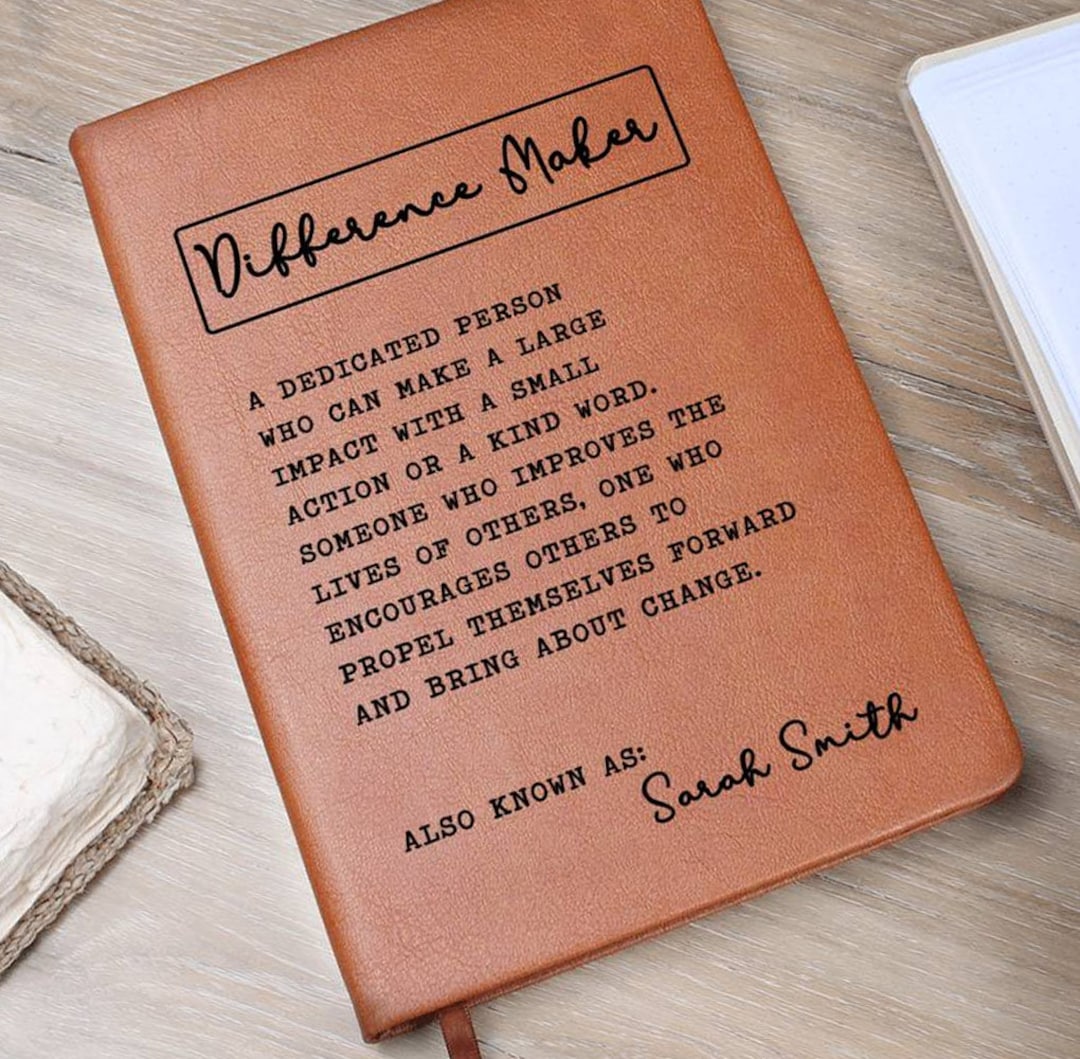 Difference Maker
A DEDICATED PERSON
WHO CAN MAKE A LARGE
IMPACT WITH A SMALL
ACTION OR A KIND WORD.
SOMEONE WHO IMPROVES THE
LIVES OF OTHERS, ONE WHO
ENCOURAGES OTHERS TO
PROPEL THEMSELVES FORWARD
AND BRING ABOUT CHANGE.
ALSO KNOWN AS:
Sarah Smith